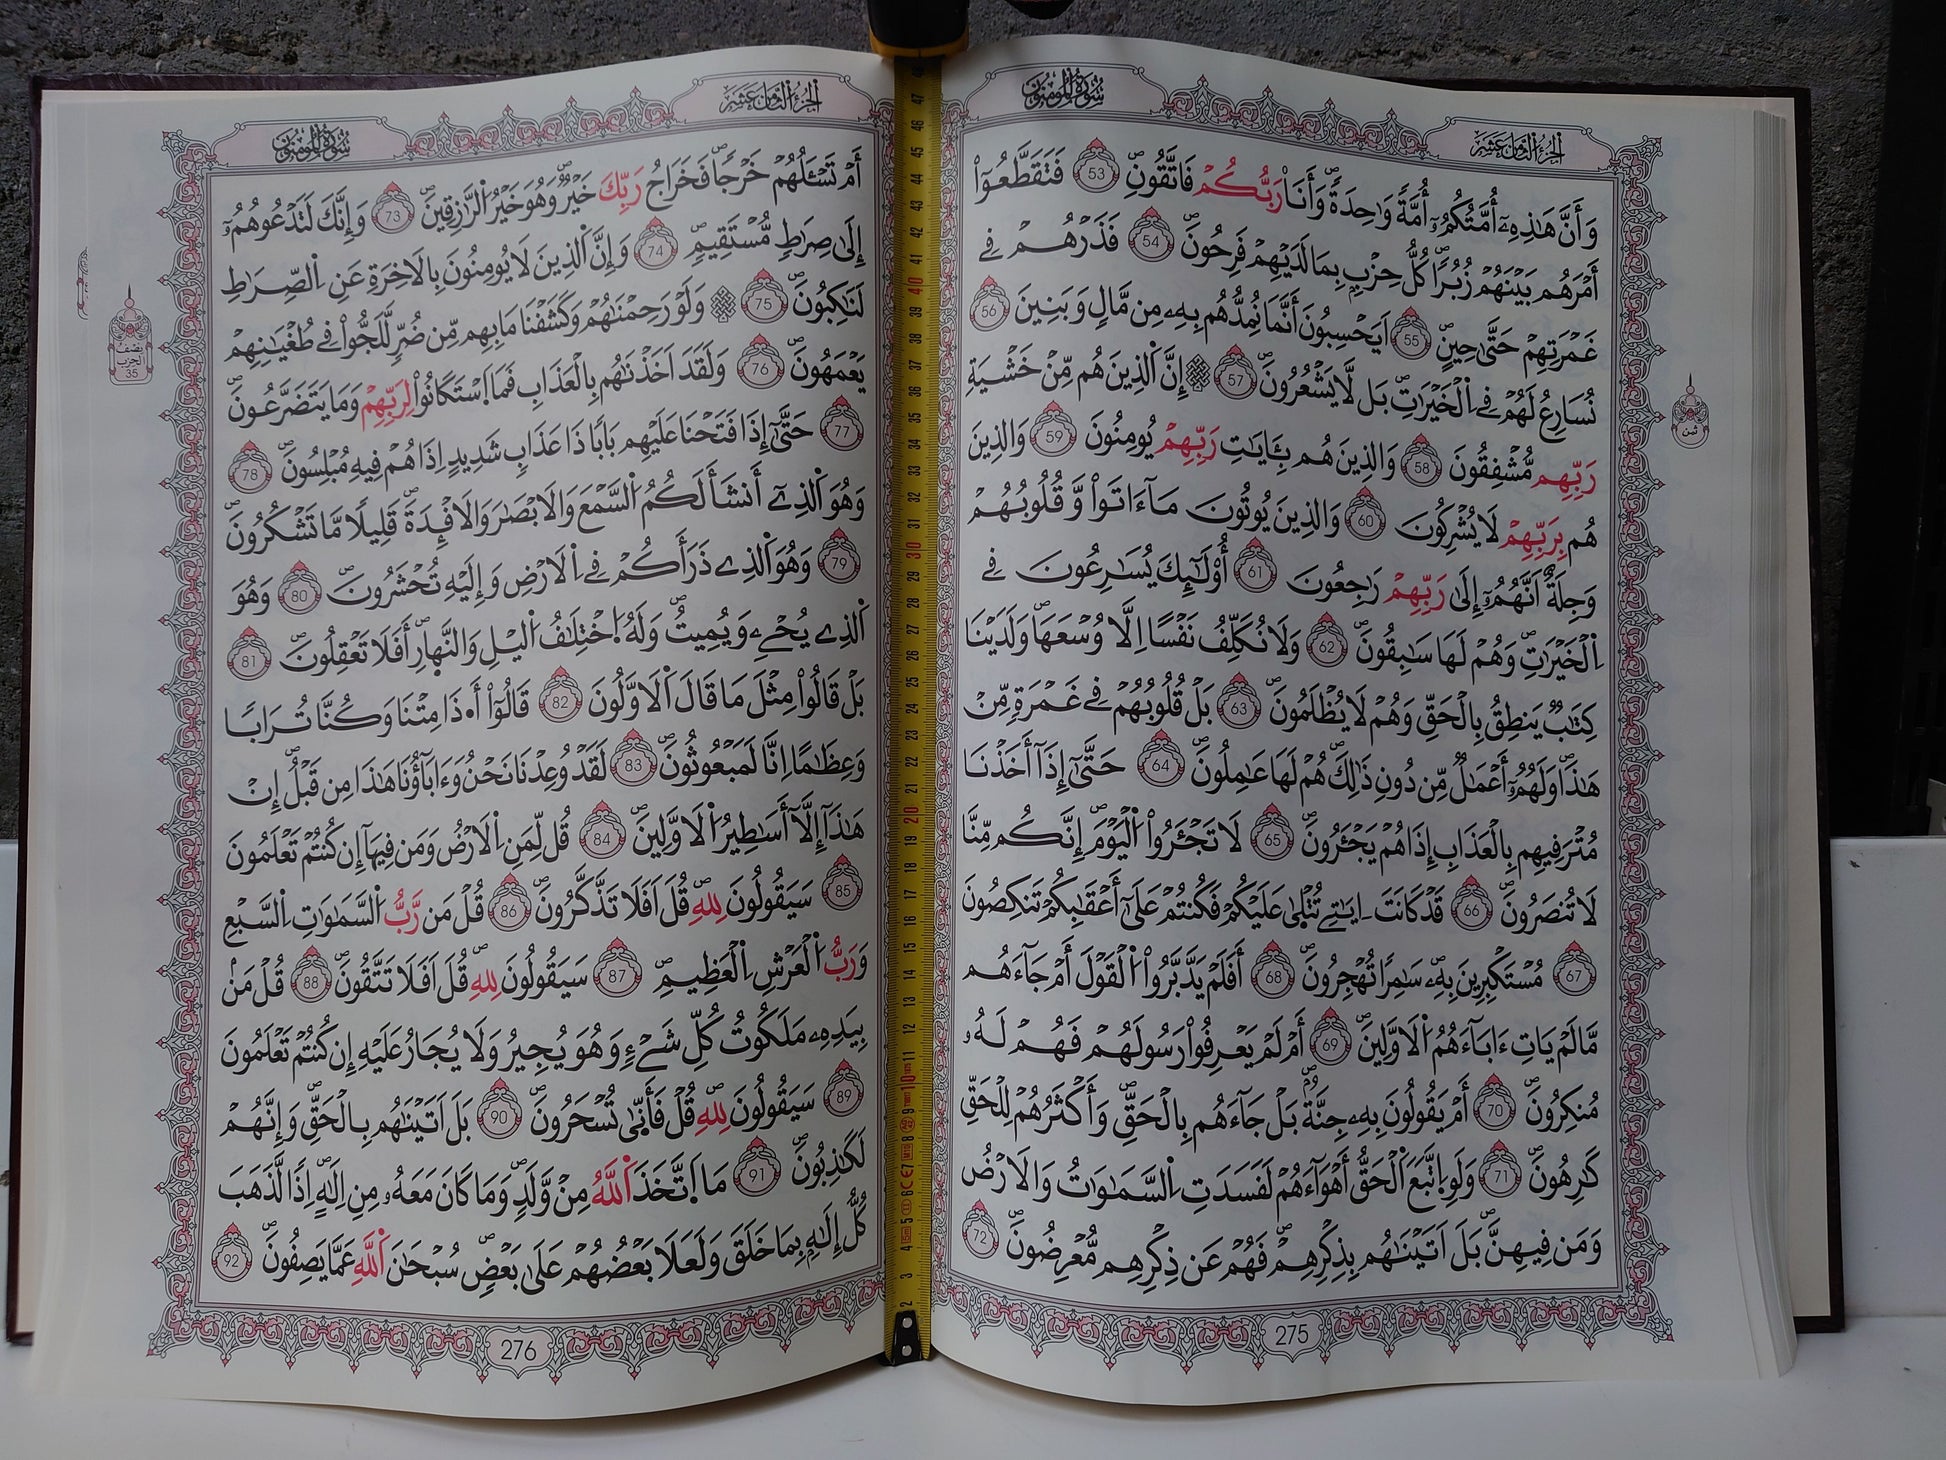 سورة المومنون
الجزء الثامن عشر
وَأَنَّ هَٰذِهِۦٓ أُمَّتُكُمُۥٓ أُمَّةٗ وَٰحِدَةٗ وَأَنَا۠ رَبُّكُمْ فَاتَّقُونِۖ 53 فَتَقَطَّعُوٓاْ
أَمْرَهُم بَيْنَهُمْ زُبُراٗ كُلُّ حِزْبِۢ بِمَا لَدَيْهِمْ فَرِحُونَۖ 54 فَذَرْهُمْ فِے
غَمْرَتِهِمْ حَتَّىٰ حِينٍۖ 55 اَيَحْسِبُونَ أَنَّمَا نُمِدُّهُم بِهِۦ مِن مَّالٖ وَبَنِينَ 56
نُسَارِعُ لَهُمْ فِے اِ۬لْخَيْرَٰتِۖ بَل لَّا يَشْعُرُونَۖ 57 ۞ إِنَّ اَ۬لذِينَ هُم مِّنْ خَشْيَةِ
رَبِّهِم مُّشْفِقُونَ 58 وَالذِينَ هُم بِـَٔايَٰتِ رَبِّهِمْ يُومِنُونَ 59 وَالذِينَ
هُم بِرَبِّهِمْ لَا يُشْرِكُونَ 60 وَالذِينَ يُوتُونَ مَآ ءَاتَواْ وَّقُلُوبُهُمْ
وَجِلَةٌ اَنَّهُمُۥٓ إِلَىٰ رَبِّهِمْ رَٰجِعُونَ 61 أُوْلَٰٓئِكَ يُسَٰرِعُونَ فِے
اِ۬لْخَيْرَٰتِۖ وَهُمْ لَهَا سَٰبِقُونَۖ 62 وَلَا نُكَلِّفُ نَفْساً اِلَّا وُسْعَهَاۖ وَلَدَيْنَا
كِتَٰبٞ يَنطِقُ بِالْحَقِّ وَهُمْ لَا يُظْلَمُونَۖ 63 بَلْ قُلُوبُهُمْ فِے غَمْرَةٖ مِّنْ
هَٰذَاۖ وَلَهُمُۥٓ أَعْمَٰلٞ مِّن دُونِ ذَٰلِكَۖ هُمْ لَهَا عَٰمِلُونَۖ 64 حَتَّىٰٓ إِذَآ أَخَذْنَا
مُتْرَفِيهِم بِالْعَذَابِ إِذَا هُمْ يَجْـَٔرُونَۖ 65 لَا تَجْـَٔرُواْ اُ۬لْيَوْمَۖ إِنَّكُم مِّنَّا
لَا تُنصَرُونَۖ 66 قَدْ كَانَتَ اٰيَٰتِے تُتْلَىٰ عَلَيْكُمْ فَكُنتُمْ عَلَىٰٓ أَعْقَٰبِكُمْ تَنكِصُونَ
67 مُسْتَكْبِرِينَ بِهِۦۖ سَٰمِراٗ تُهْجِرُونَۖ 68 أَفَلَمْ يَدَّبَّرُواْ اُ۬لْقَوْلَ أَمْ جَآءَهُم
مَّا لَمْ يَاتِ ءَابَآءَهُمُ اُ۬لَاوَّلِينَۖ 69 أَمْ لَمْ يَعْرِفُواْ رَسُولَهُمْ فَهُمْ لَهُۥ
مُنكِرُونَۖ 70 أَمْ يَقُولُونَ بِهِۦ جِنَّةُۢۖ بَلْ جَآءَهُم بِالْحَقِّۖ وَأَكْثَرُهُمْ لِلْحَقِّ
كَٰرِهُونَۖ 71 وَلَوِ اِ۪تَّبَعَ اَ۬لْحَقُّ أَهْوَآءَهُمْ لَفَسَدَتِ اِ۬لسَّمَٰوَٰتُ وَالَارْضُ
وَمَن فِيهِنَّۖ بَلَ اَتَيْنَٰهُم بِذِكْرِهِمْۖ فَهُمْ عَن ذِكْرِهِم مُّعْرِضُونَۖ 72
ثمن
275
الجزء الثامن عشر
سورة المومنون
أَمْ تَسْـَٔلُهُمْ خَرْجاٗۖ فَخَرَاجُ رَبِّكَ خَيْرٞۖ وَهُوَ خَيْرُ اُ۬لرَّٰزِقِينَۖ 73 وَإِنَّكَ لَتَدْعُوهُمُۥٓ
إِلَىٰ صِرَٰطٖ مُّسْتَقِيمٖۖ 74 وَإِنَّ اَ۬لذِينَ لَا يُومِنُونَ بِالَاخِرَةِ عَنِ اِ۬لصِّرَٰطِ
لَنَٰكِبُونَۖ 75 ۞ وَلَوْ رَحِمْنَٰهُمْ وَكَشَفْنَا مَا بِهِم مِّن ضُرّٖ لَّلَجُّواْ فِے طُغْيَٰنِهِمْ
يَعْمَهُونَۖ 76 وَلَقَدَ اَخَذْنَٰهُم بِالْعَذَابِ فَمَا اَ۪سْتَكَانُواْ لِرَبِّهِمْ وَمَا يَتَضَرَّعُونَۖ
77 حَتَّىٰٓ إِذَا فَتَحْنَا عَلَيْهِم بَاباٗ ذَا عَذَابٖ شَدِيدٍ اِذَا هُمْ فِيهِ مُبْلِسُونَۖ 78
وَهُوَ اَ۬لذِےٓ أَنشَأَ لَكُمُ اُ۬لسَّمْعَ وَالَابْصَٰرَ وَالَافْـِٕدَةَۖ قَلِيلاٗ مَّا تَشْكُرُونَۖ
79 وَهُوَ اَ۬لذِے ذَرَأَكُمْ فِے اِ۬لَارْضِ وَإِلَيْهِ تُحْشَرُونَۖ 80 وَهُوَ
اَ۬لذِے يُحْيِۦ وَيُمِيتُۖ وَلَهُ اُ۪خْتِلَٰفُ اُ۬ليْلِ وَالنَّهارِۖ أَفَلَا تَعْقِلُونَۖ 81
بَلْ قَالُواْ مِثْلَ مَا قَالَ اَ۬لَاوَّلُونَ 82 قَالُوٓاْ أَ.ذَا مِتْنَا وَكُنَّا تُرَاباٗ
وَعِظَٰماً اِنَّا لَمَبْعُوثُونَۖ 83 لَقَدْ وُعِدْنَا نَحْنُ وَءَابَآؤُنَا هَٰذَا مِن قَبْلُۖ إِنْ
هَٰذَآ إِلَّآ أَسَٰطِيرُ اُ۬لَاوَّلِينَۖ 84 قُل لِّمَنِ اِ۬لَارْضُ وَمَن فِيهَآ إِن كُنتُمْ تَعْلَمُونَ
85 سَيَقُولُونَ لِلهِۖ قُلَ اَفَلَا تَذَّكَّرُونَۖ 86 قُلْ مَن رَّبُّ اُ۬لسَّمَٰوَٰتِ اِ۬لسَّبْعِ
وَرَبُّ اُ۬لْعَرْشِ اِ۬لْعَظِيمِۖ 87 سَيَقُولُونَ لِلهِۖ قُلَ اَفَلَا تَتَّقُونَۖ 88 قُلْ مَنۢ
بِيَدِهِۦ مَلَكُوتُ كُلِّ شَےْءٖ وَهُوَ يُجِيرُ وَلَا يُجَارُ عَلَيْهِ إِن كُنتُمْ تَعْلَمُونَ
89 سَيَقُولُونَ لِلهِۖ قُلْ فَأَنّ۪ىٰ تُسْحَرُونَۖ 90 بَلَ اَتَيْنَٰهُم بِالْحَقِّۖ وَإِنَّهُمْ
لَكَٰذِبُونَۖ 91 مَا اَ۪تَّخَذَ اَ۬للَّهُ مِنْ وَّلَدٖۖ وَمَا كَانَ مَعَهُۥ مِنِ اِلَٰهٍۖ اِذاٗ لَّذَهَبَ
كُلُّ إِلَٰهِۢ بِمَا خَلَقَ وَلَعَلَا بَعْضُهُمْ عَلَىٰ بَعْضٖۖ سُبْحَٰنَ اَ۬للَّهِ عَمَّا يَصِفُونَۖ 92
نصف
الحزب
35
276